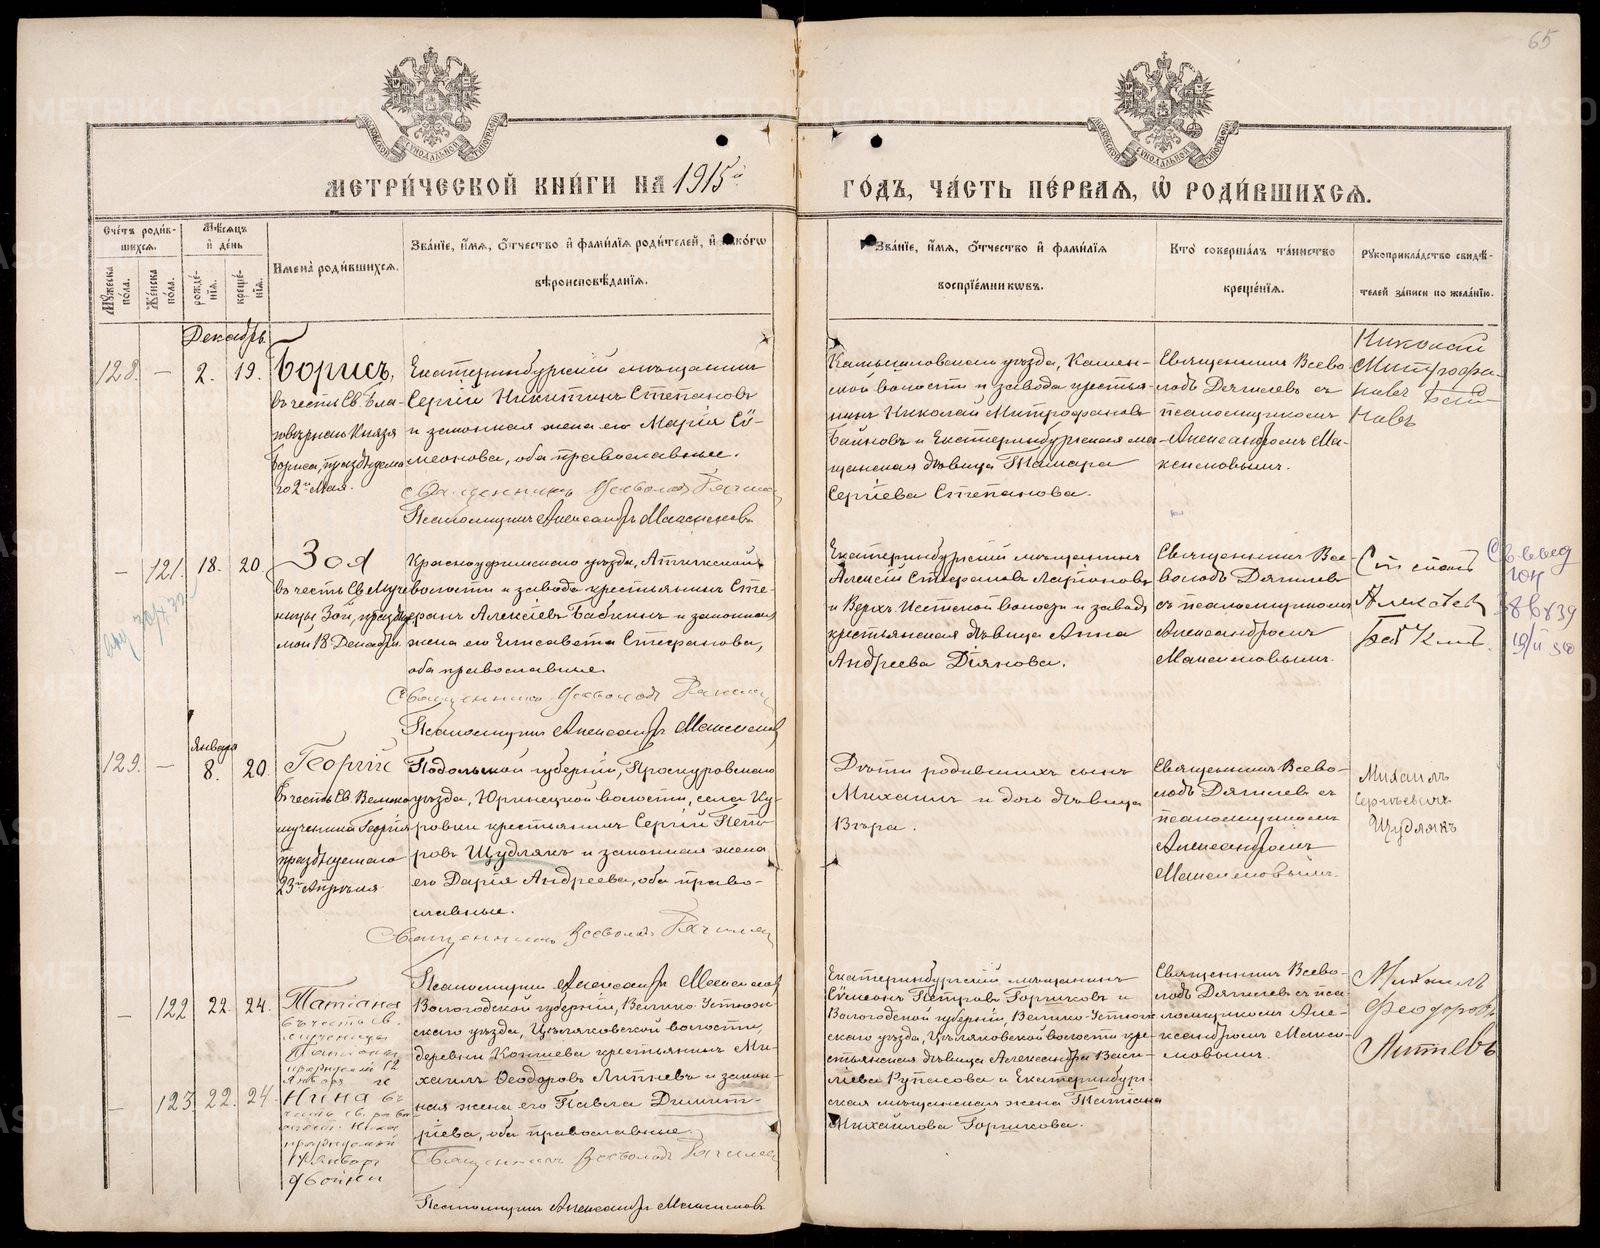 65
МОСКОВСКОЙ СѴНОДАЛЬНОЙ ТИПОГРАФІИ
МОСКОВСКОЙ СѴНОДАЛЬНОЙ ТИПОГРАФІИ
МЕТРИ́ЧЕСКОЙ КНИ́ГИ НА 1915й
ГО́ДЪ, ЧА́СТЬ ПЕ́РВАЯ, Ѡ҆ РОДИ́ВШИХСЯ.
Сче́тъ роди́в-
шихся.
Му́жеска по́ла.
Же́нска по́ла.
Мѣ́сяцъ
и҆ де́нь
рожде́-
нїя.
креще́-
нїя.
Имена̀ роди́вшихся.
Зва́нїе, и҆́мя, ѻ҆́тчество и҆ фами́лїя роди́телей, и҆ како́гѡ
вѣроисповѣ́данїя.
Зва́нїе, и҆́мя, ѻ҆́тчество и҆ фами́лїя
воспрїе́мникѡвъ.
Кто̀ соверша́лъ та́инство
креще́нїя.
Рукоприкла́дство свидѣ́-
телей за́писи по жела́нїю.
Декабрь
128. — 2. 19.
Борисъ,
въ честь Св. Бла-
говѣрнаго Князя
Бориса, празднуема-
го 2го Мая.
Екатеринбургскій мѣщанинъ
Сергій Никитинъ Степановъ
и законная жена его Марія Сѵ-
меонова, оба православные.
Священникъ Всеволодъ Дягилевъ
Псаломщикъ Александръ Максимовъ
Камышловскаго уѣзда, Камен-
ской волости и завода крестья-
нинъ Николай Митрофановъ
Баиновъ и Екатеринбургская мѣ-
щанская дѣвица Тамара
Сергіева Степанова.
Священникъ Всево-
лодъ Дягилевъ съ
псаломщикомъ
Александромъ Ма-
ксимовымъ.
Николай
Митрофа-
новъ Баи-
новъ
— 121. 18. 20.
Зоя
въ честь Св. Муче-
ницы Зои, празднуе-
мой 18 Декабря.
Красноуфимскаго уѣзда, Атигской
волости и завода крестьянинъ Сте-
фанъ Алексѣевъ Бабкинъ и законная
жена его Елисавета Стефанова,
оба православные.
Священникъ Всеволодъ Дягилевъ
Псаломщикъ Александръ Максимовъ
Екатеринбургскій мѣщанинъ
Алексій Стефановъ Ларіоновъ
и Верхъ Исетской волости и завода
крестьянская дѣвица Анна
Андреева Діянова.
Священникъ Все-
володъ Дягилевъ
съ псаломщикомъ
Александромъ
Максимовымъ.
Степанъ
Алексѣевъ
Бабкинъ.
Января
129. — 8. 20.
Георгій
въ честь Св. Велико-
мученика Георгія
празднуемаго
23го Апрѣля
Подольской губерніи, Проскуровскаго
уѣзда, Юринецкой волости, села Ку-
ровки крестьянинъ Сергій Пет-
ровъ Щудлякъ и законная жена
его Дарія Андреева, оба право-
славные.
Священникъ Всеволодъ Дягилевъ
Псаломщикъ Александръ Максимовъ
Дѣти родившихъ сынъ
Михаилъ и дочь дѣвица
Вѣра.
Священникъ Всево-
лодъ Дягилевъ съ
псаломщикомъ
Александромъ
Максимовымъ.
Михаилъ
Сергѣевичъ
Щудлякъ
— 122 22. 24.
Татіана
въ честь св.
мученицы
Татіаны,
празднуемой 12
Января
— 123. 22. 24.
Нина въ
честь св. равно-
апост. Нины
празднуемой
14 Января
двойни
Вологодской губерніи, Велико-Устюж-
скаго уѣзда, Цывляковской волости,
деревни Коншева крестьянинъ Ми-
хаилъ Ѳеодоровъ Литневъ и закон-
ная жена его Павла Димит-
ріева, оба православные.
Священникъ Всеволодъ Дягилевъ
Псаломщикъ Александръ Максимовъ
Екатеринбургскій мѣщанинъ
Сѵмеонъ Петровъ Горшковъ и
Вологодской губерніи, Велико-Устюж-
скаго уѣзда, Цывляковской волости кре-
стьянская дѣвица Александра Васи-
ліева Рупасова и Екатеринбург-
ская мѣщанская жена Татіана
Михайлова Горшкова.
Священникъ Всево-
лодъ Дягилевъ съ пса-
ломщикомъ Але-
ксандромъ Макси-
мовымъ.
Михаилъ
Феодоровъ
Литневъ